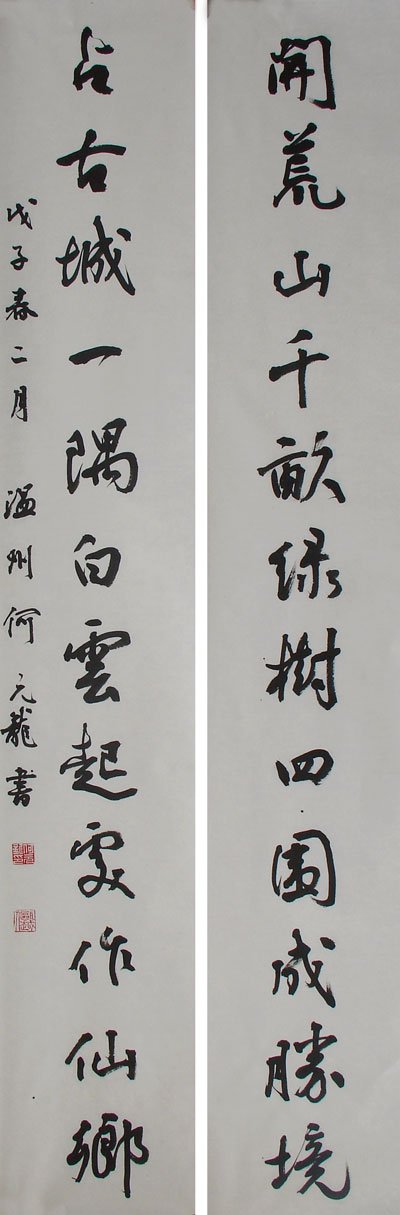 開荒山千畝绿樹四圍成勝境
占古城一隅白雲起處作仙鄉
戊子春二月 温州何元龍書